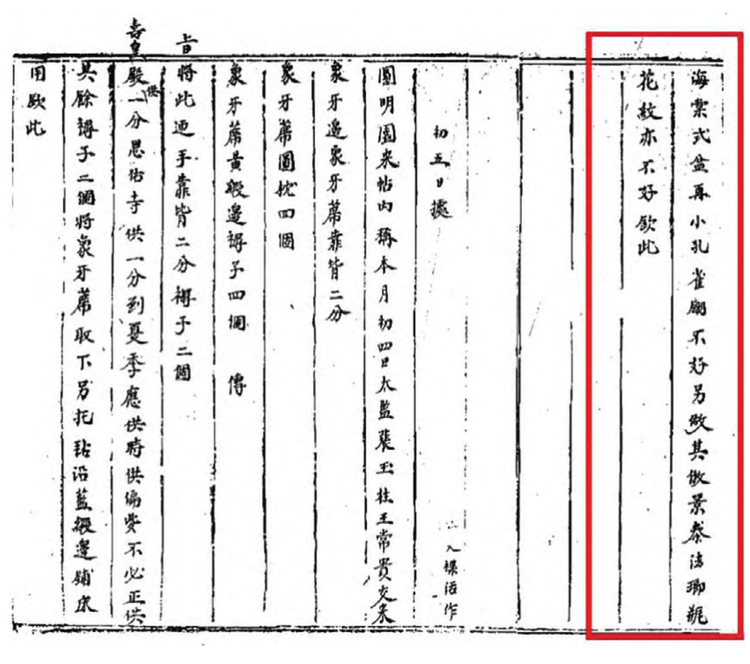 海棠式盆再小孔雀翎不好另做其倣景泰法瑯瓶
花紋亦不好欽此
初五日據 入襍活作
圓明園來帖內稱本月初四日太監張玉柱王常貴交來
象牙邊象牙蓆靠背二分
象牙蓆圓枕四個
象牙蓆黃緞邊褥子四個 傳
旨將此迎手靠背二分褥子二個
壽皇殿供一分恩佑寺供一分到夏季應供時供偏安不必正供
其餘褥子二個將象牙蓆取下另托氈沿藍緞邊鋪床
用欽此